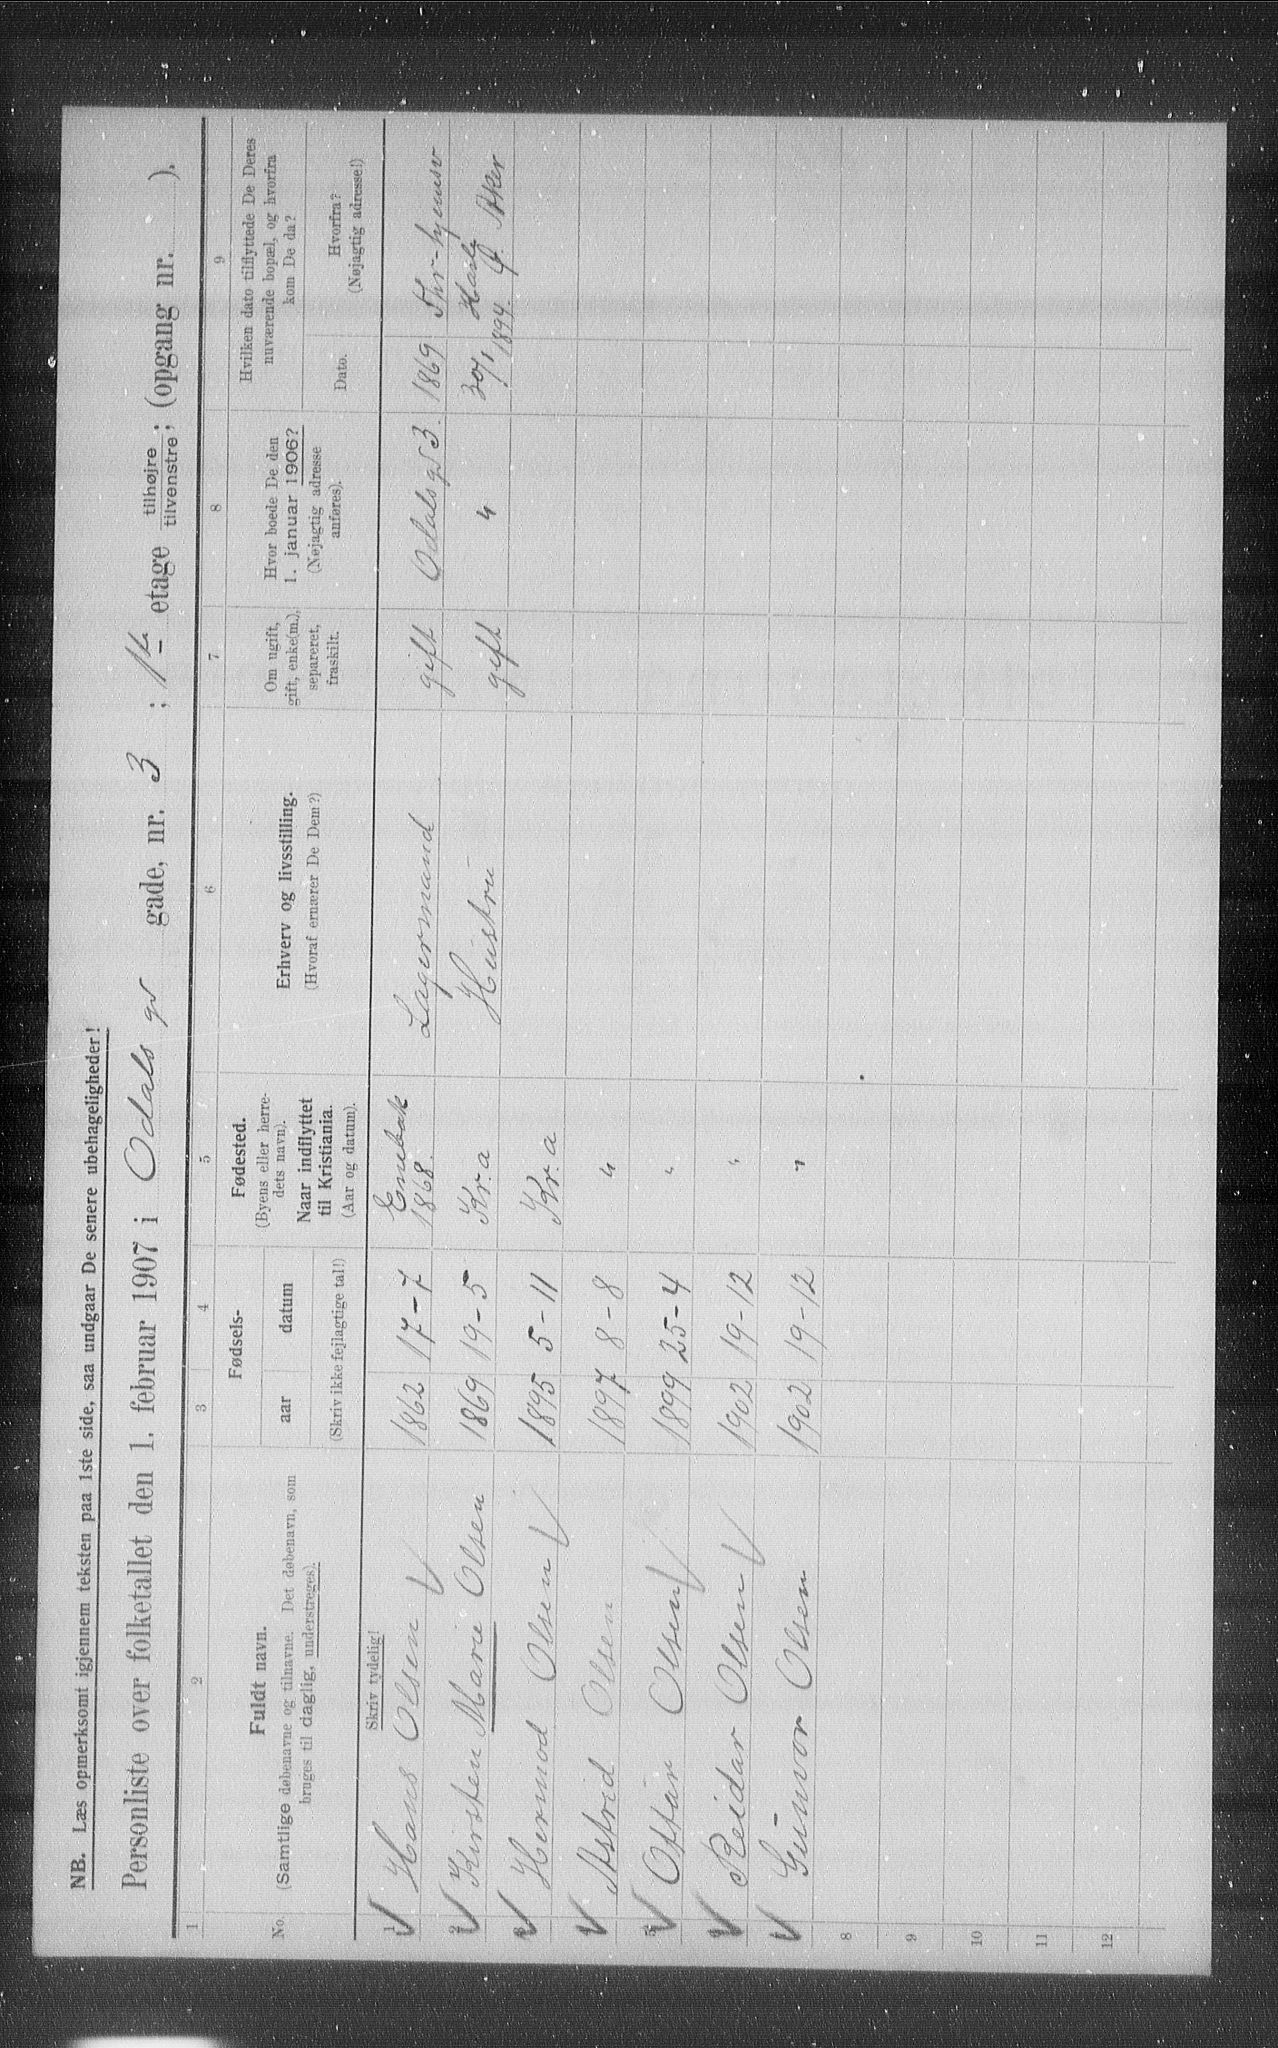 NB. Læs opmerksomt igjennem teksten paa 1ste side, saa undgaar De senere ubehageligheder!
Personliste over folketallet den 1. februar 1907 i Odals gd gade, nr. 3 ; 1ste etage tilhøjre tilvenstre; (opgang nr. ).
1 2 3 4 5 6 7 8 9
No.
Fuldt navn.
(Samtlige døbenavne og tilnavne. Det døbenavn, som
bruges til daglig, understreges).
Fødsels-
aar datum
(Skriv ikke fejlagtige tal!)
Fødested.
(Byens eller herre-
dets navn).
Naar indflyttet
til Kristiania.
(Aar og datum).
Erhverv og livsstilling.
(Hvoraf ernærer De Dem?)
Om ugift,
gift, enke(m.),
separeret,
fraskilt.
Hvor boede De den
1. januar 1906?
(Nøjagtig adresse
anføres).
Hvilken dato tilflyttede De Deres
nuværende bopæl, og hvorfra
kom De da?
Dato.
Hvorfra?
(Nøjagtig adresse!)
Skriv tydelig!
1 Hans Olsen 1862 17-7 Enebak 1868. Lagermand gift Odals gd 3. 1869
2 Kirsten Marie Olsen 1869 19-5 Kr.a Hustru gift " 30/1 1894. Hasle Aker
Hermod Olsen 1895 5-11 Kr.a
Astrid Olsen 1897 8-8 "
5 Ottar Olsen 1899 25-4 "
Reidar Olsen 1902 19-12 "
Gunvor Olsen 1902 19-12 "
8
9
10
11
12